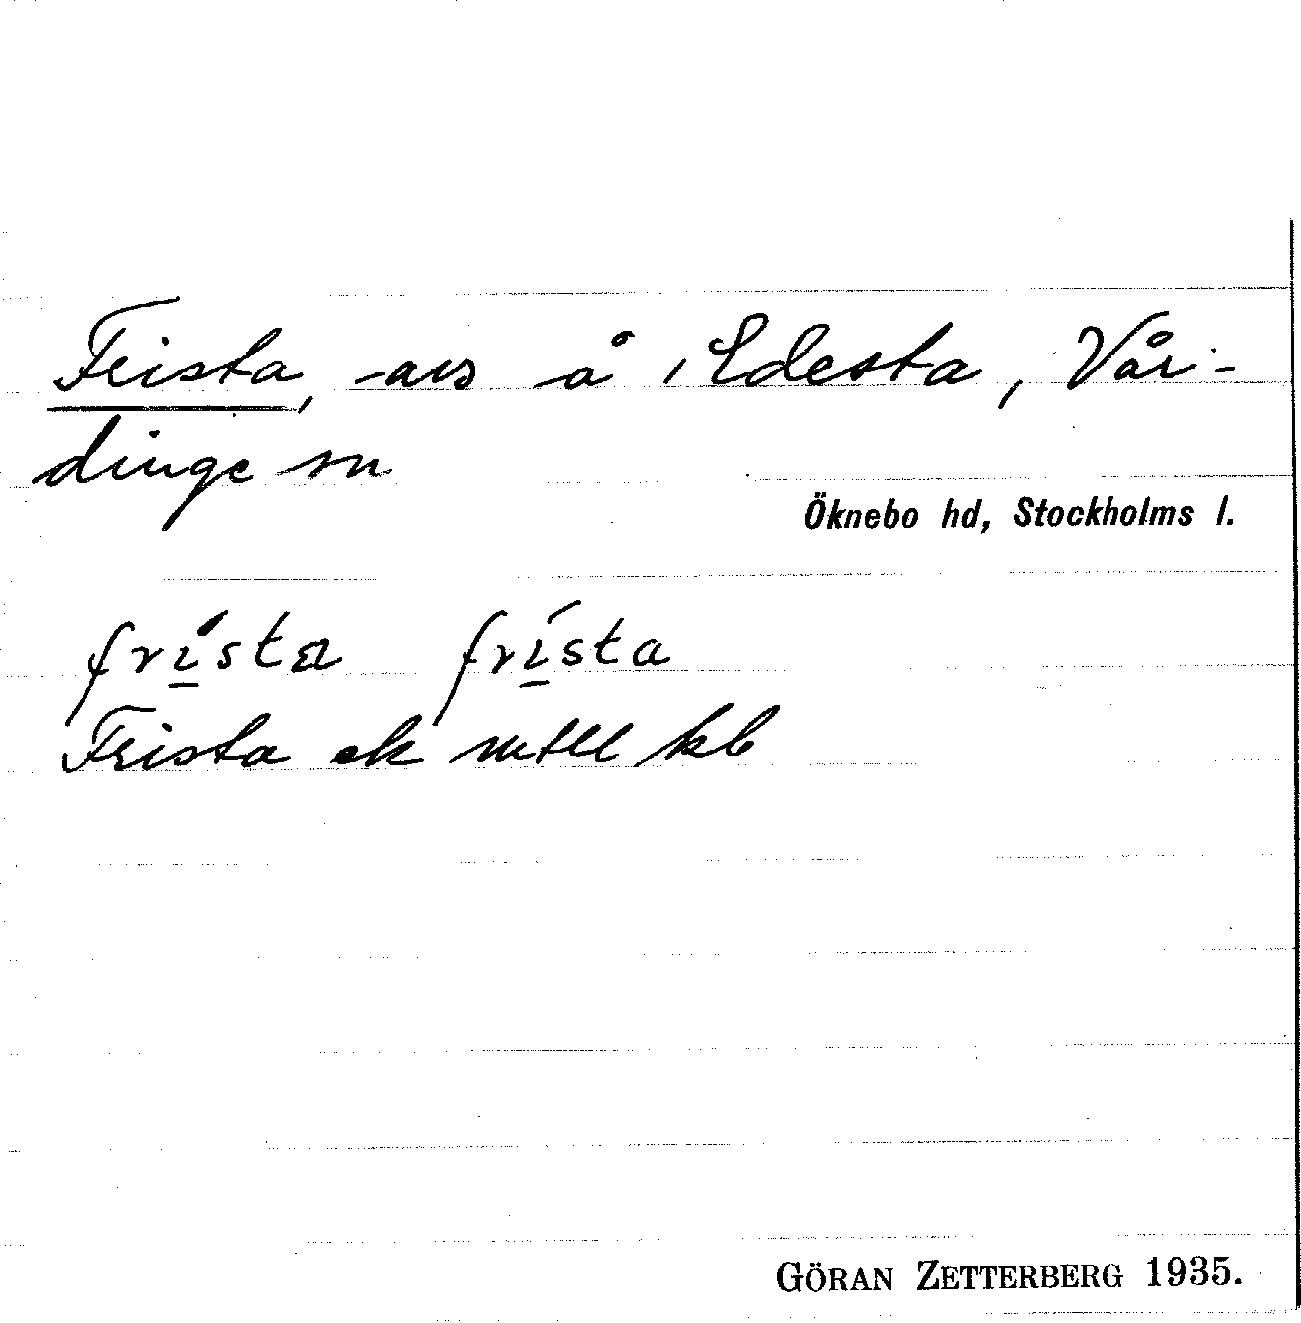 Frista, -avs å Edesta, Vår-
dinge sn
Öknebo hd, Stockholms l.
frista frista
Frista ek kb
GÖRAN ZETTERBERG 1935.